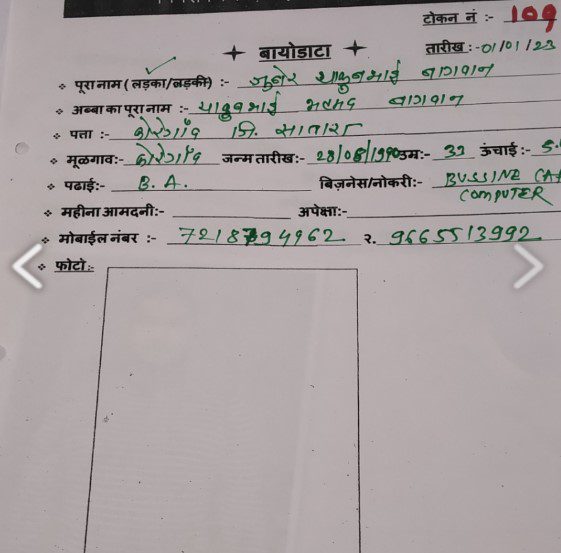 टोकन नं :- 109
बायोडाटा
तारीख :- 01/01/23
पूरा नाम (लड़का/लड़की) :- जुनेर याकुबभाई बागवान
अब्बा का पूरा नाम :- याकुबभाई बागवान
पता :- कोरेगाँव जि. सातारा
मूळगाव:- कोरेगाँव जन्म तारीख:- 28/08/1990 उम्र:- 32 ऊंचाई :- 5.
पढाई:- B. A. बिज़नेस/नोकरी:- BUSSINE
COMPUTER
महीना आमदनी:- अपेक्षा:-
मोबाईल नंबर :- 7218794962 २. 9665513992
फोटो:-